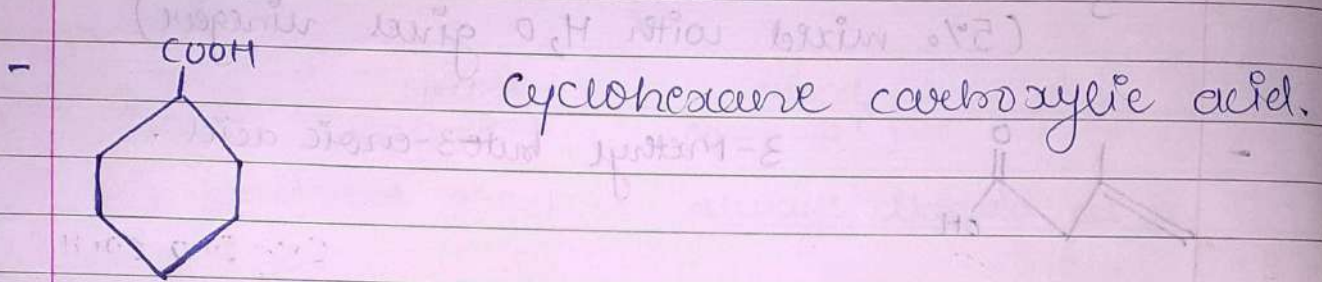 - COOH
Cyclohexane carboxylic acid.